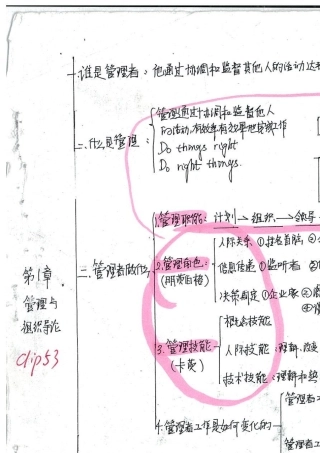 一.谁是管理者:他通过协调和监督其他人的活动达
二.什么是管理:
管理通过协调和监督他人
的活动,有效率有效果地完成工作
Do things right
Do right things.
三.管理者做什么
1.管理职能: 计划→组织→领导
2.管理角色:
(明茨伯格)
人际关系 ①挂名首脑 ②
信息传递 ①监听者 ②
决策制定 ①企业家 ②
3.管理技能
(卡茨)
概念技能
人际技能:理解、改变
技术技能:理解和熟
4.管理者工作是如何变化的
管理者工
管理者
第1章
管理与
组织导论
clip53